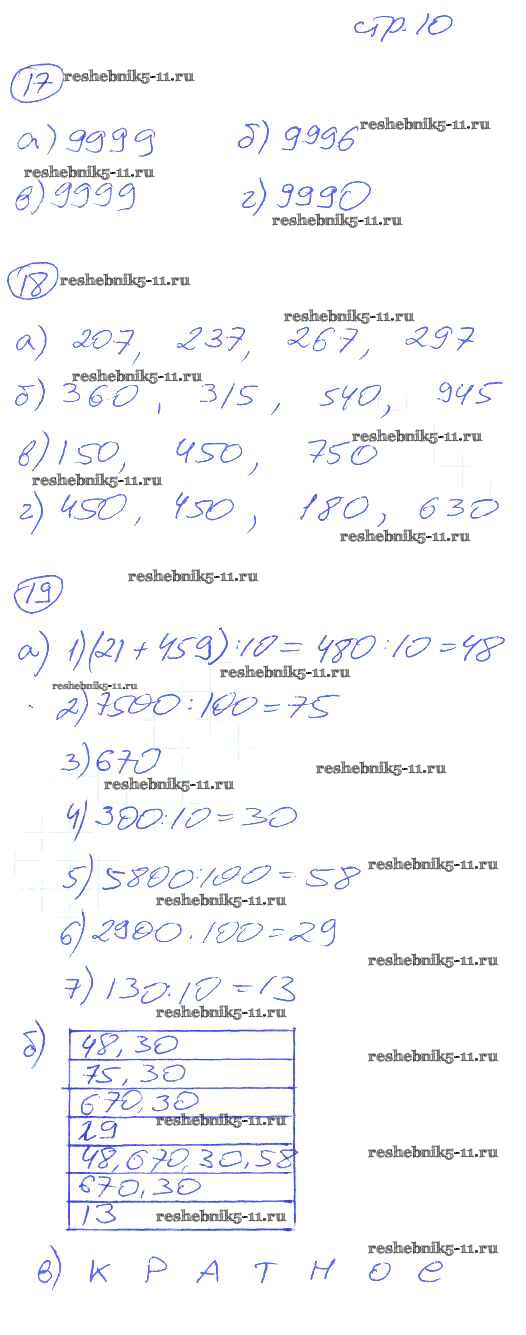 стр. 10
17 reshebnik5-11.ru
а) 9999 б) 9996 reshebnik5-11.ru
reshebnik5-11.ru
в) 9999 г) 9990
reshebnik5-11.ru
18 reshebnik5-11.ru
reshebnik5-11.ru
а) 207, 237, 267, 297
reshebnik5-11.ru
б) 360, 315, 540, 945
reshebnik5-11.ru
в) 150, 450, 750
reshebnik5-11.ru
г) 450, 450, 180, 630
reshebnik5-11.ru
reshebnik5-11.ru
19
а) 1) (21 + 459) : 10 = 480 : 10 = 48
reshebnik5-11.ru
reshebnik5-11.ru
2) 7500 : 100 = 75
3) 670
reshebnik5-11.ru
reshebnik5-11.ru
4) 300 : 10 = 30
reshebnik5-11.ru
5) 5800 : 100 = 58
reshebnik5-11.ru
6) 2900 . 100 = 29
reshebnik5-11.ru
7) 130 : 10 = 13
reshebnik5-11.ru
б) 48, 30
reshebnik5-11.ru
75, 30
670, 30
reshebnik5-11.ru
29
48, 670, 30, 58
reshebnik5-11.ru
670, 30
13 reshebnik5-11.ru
reshebnik5-11.ru
в) К Р А Т Н О Е